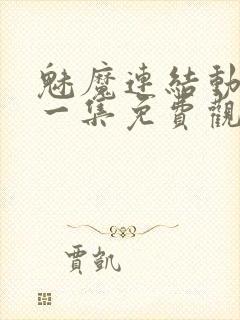 魅魔連結動
一集免費觀
賈凱